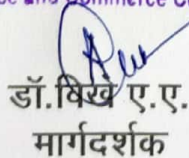 se and Commerce C
डॉ.विखे ए.ए.
मार्गदर्शक